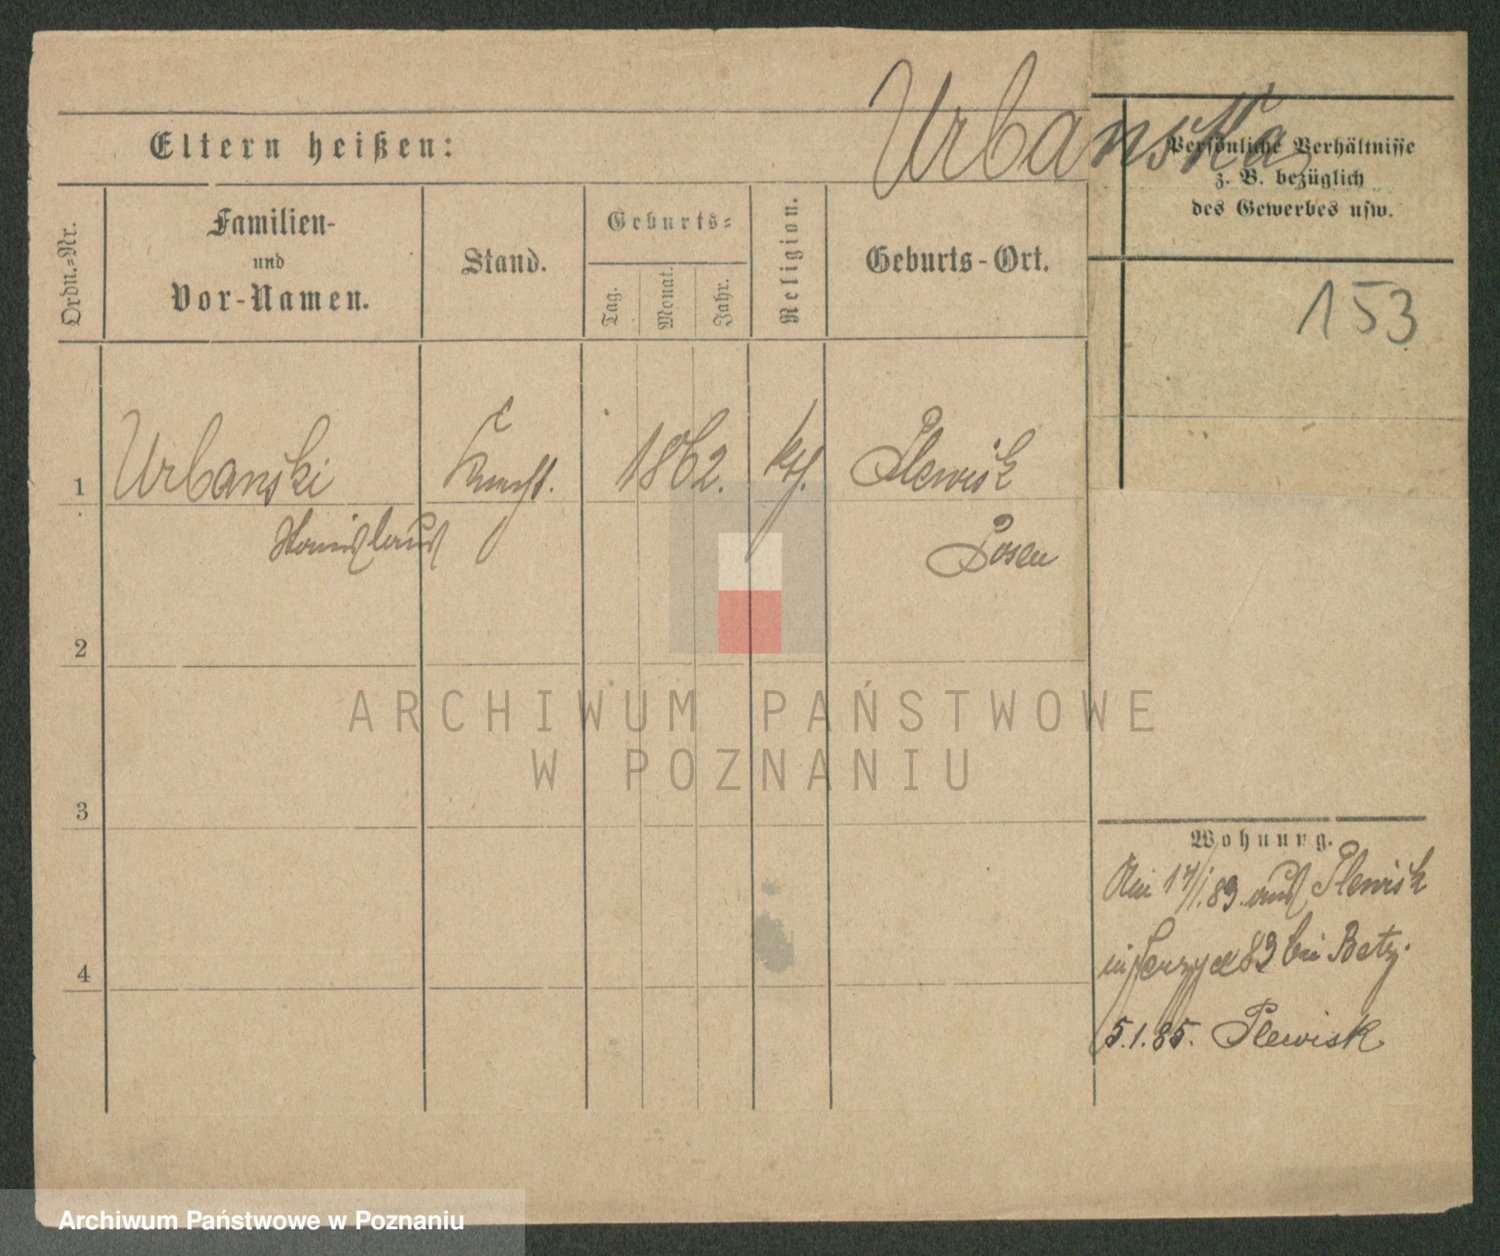 Urbanska
Eltern heißen:
Persönliche Verhältnisse
z. B. bezüglich
des Gewerbes usw.
Ordn.-Nr.
Familien-
und
Vor-Namen.
Stand.
Geburts-
Tag.
Monat.
Jahr.
Religion.
Geburts-Ort.
153
1 Urbanski Knecht. 1862. kth. Plewisk
Stanislaus Posen
2
3
4
ARCHIWUM PAŃSTWOWE
W POZNANIU
Wohnung.
17/1.83. aus Plewisk
in Jerzyce 82 bei Betz.
5.1.85. Plewisk
Archiwum Państwowe w Poznaniu